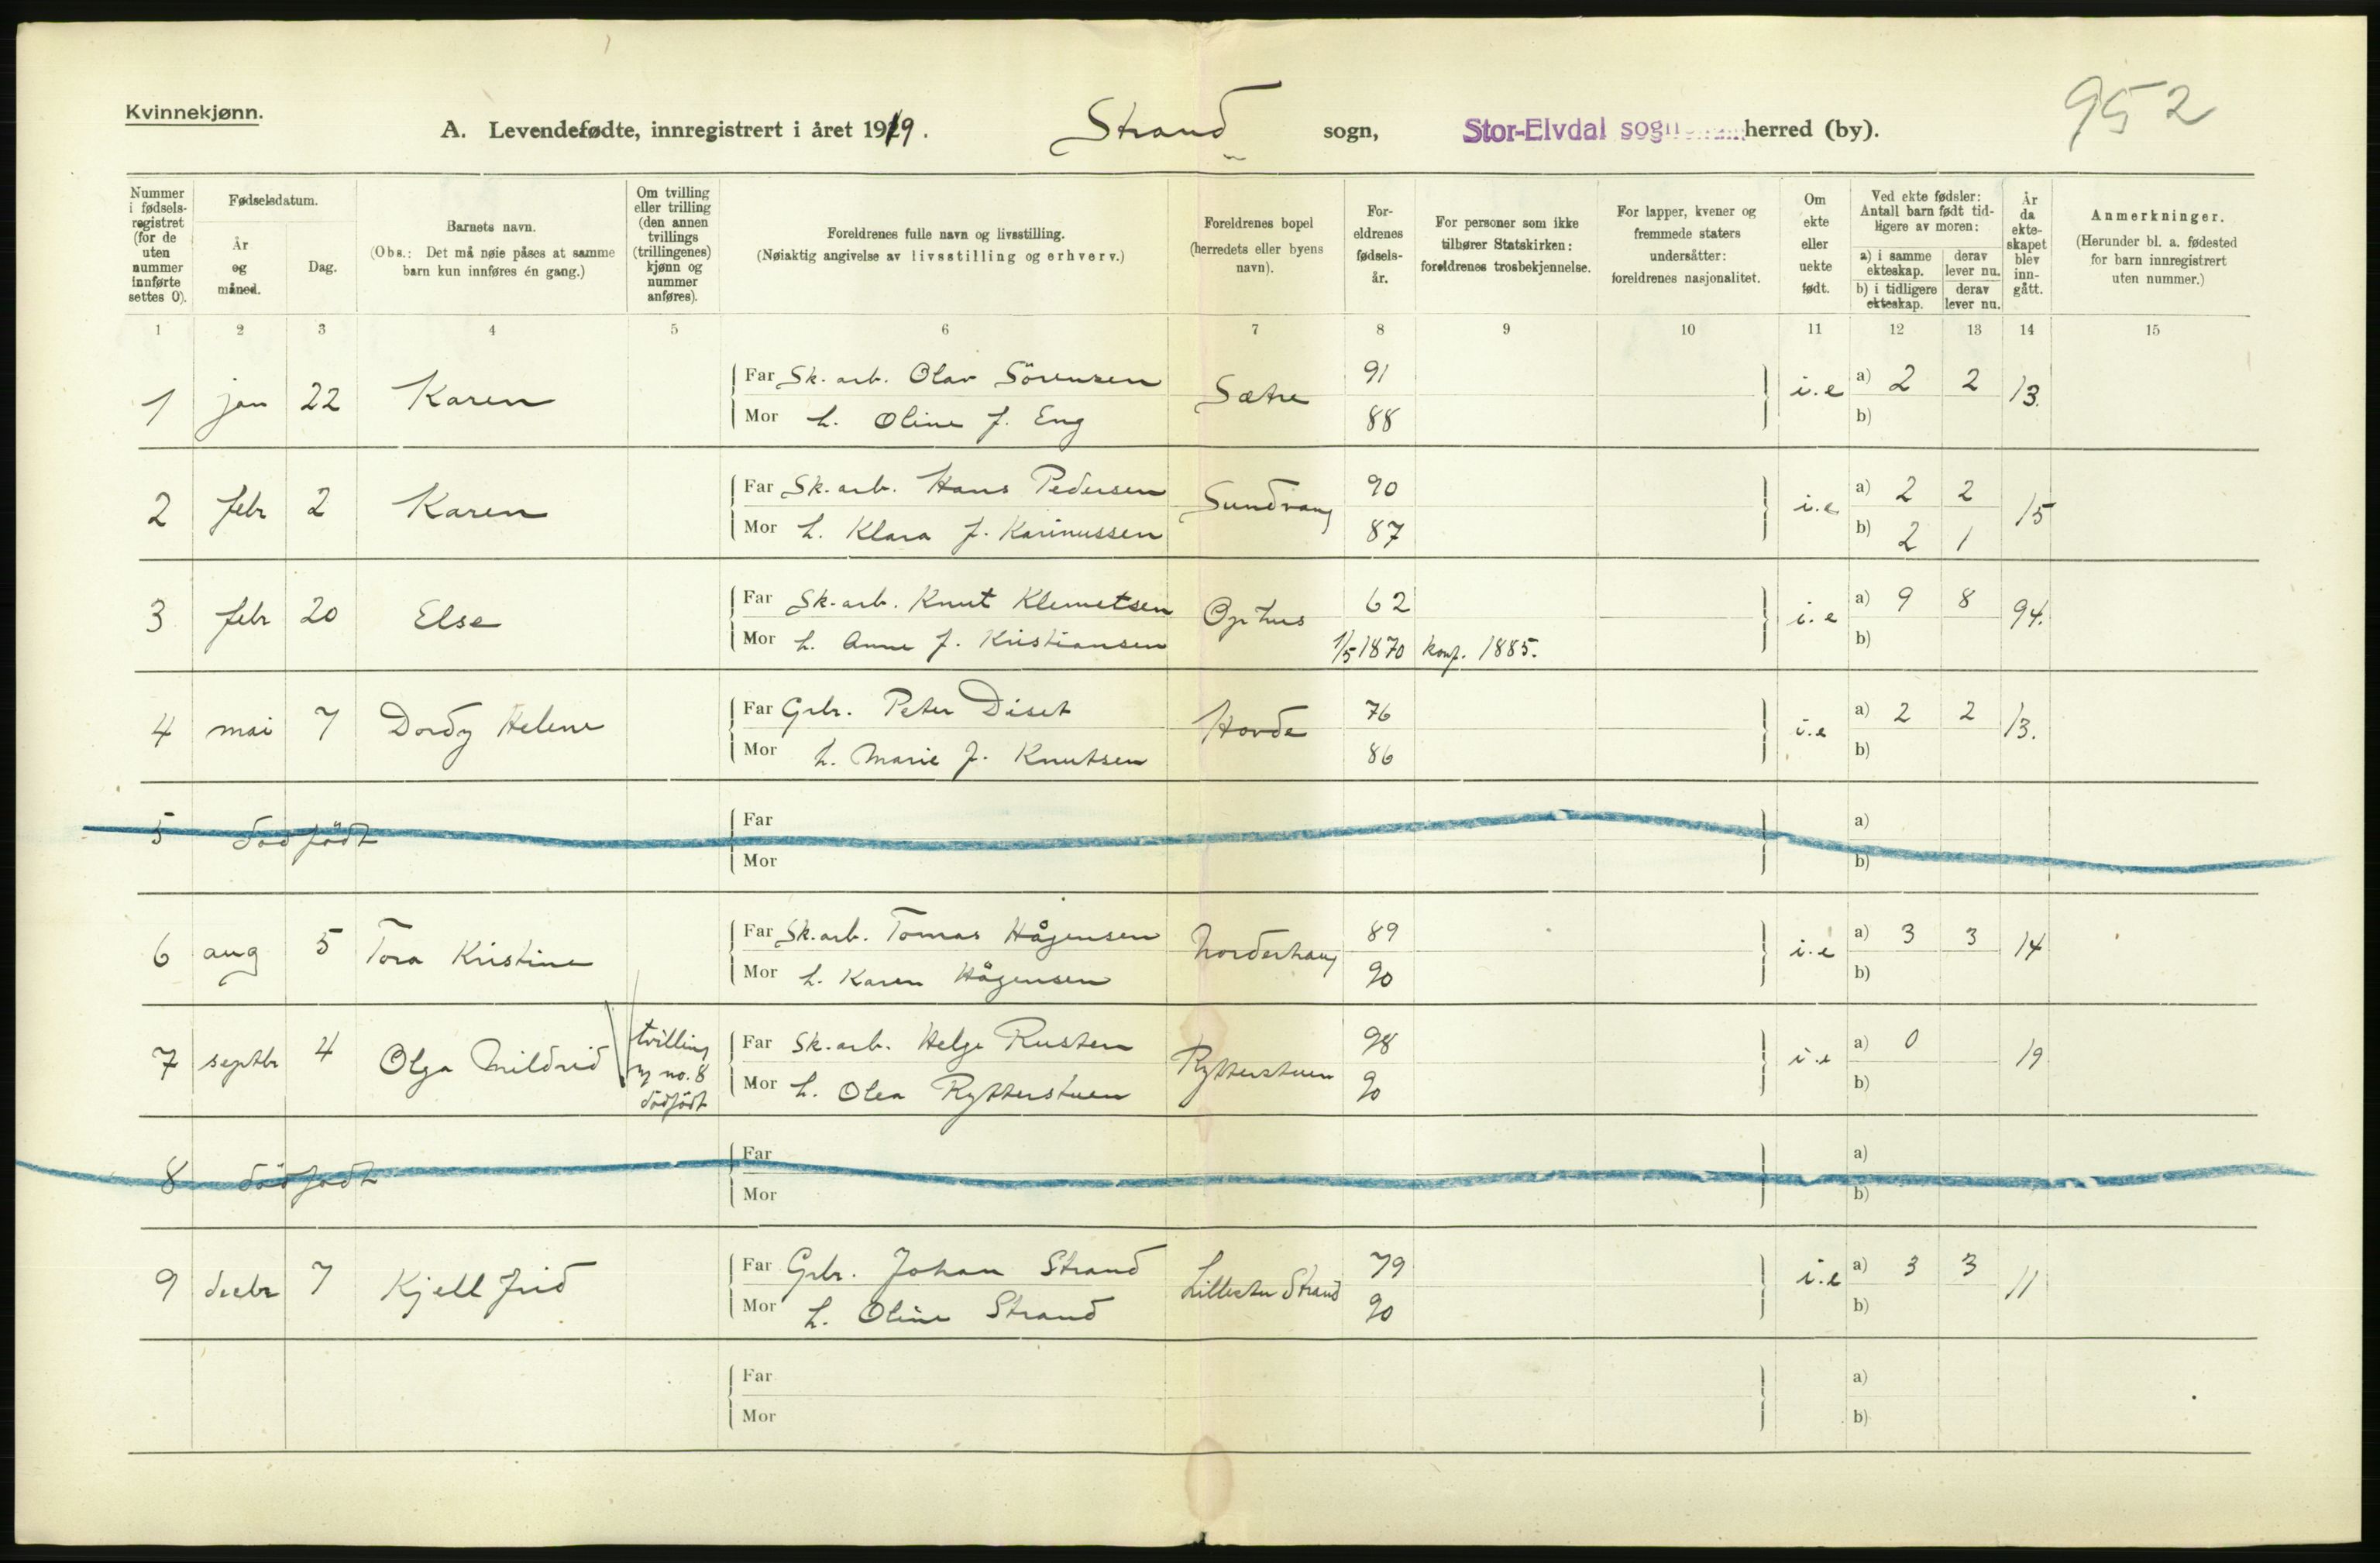 952
Kvinnekjønn.
A. Levendefødte, innregistrert i året 1919. Strand sogn, Stor-Elvdal sogn herred (by).
Nummer i fødsels-registret (for de uten nummer innførte settes 0).
Fødselsdatum.
År og måned.
Dag.
Barnets navn.
(Obs.: Det må nøie påses at samme barn kun innføres én gang.)
Om tvilling eller trilling (den annen tvillings (trillingenes) kjønn og nummer anføres).
Foreldrenes fulle navn og livsstilling.
(Nøiaktig angivelse av livsstilling og erhverv.)
Foreldrenes bopel (herredets eller byens navn).
For-eldrenes fødsels-år.
For personer som ikke tilhører Statskirken: foreldrenes trosbekjennelse.
For lapper, kvener og fremmede staters undersåtter: foreldrenes nasjonalitet.
Om ekte eller uekte født.
Ved ekte fødsler: Antall barn født tid-ligere av moren:
a) i samme ekteskap. derav lever nu.
b) i tidligere ekteskap. derav lever nu.
År da ekte-skapet blev inn-gått.
Anmerkninger.
(Herunder bl. a. fødested for barn innregistrert uten nummer.)
1 2 3 4 5 6 7 8 9 10 11 12 13 14 15
1 jan 22 Karen Far Sk. arb. Olav Sörensen Sætre 91 i.e a) 2 2 13.
Mor h. Oline f. Eng 88 b)
2 febr 2 Karen Far Sk. arb. Hans Pedersen Sundvang 90 i.e a) 2 2 15
Mor h. Klara f. Karinussen 87 b) 2 1
3 febr 20 Else Far Sk. arb. Knut Klemetsen Ophus 62 i.e a) 9 8 94.
Mor h. Anne f. Kristiansen 1/5 1870 konf. 1885. b)
4 mai 7 Dordy Helene Far Grbr. Peter Diset Hovde 76 i.e a) 2 2 13.
Mor h. Marie f. Knutsen 86 b)
5 dødfödt Far a)
Mor b)
6 aug 5 Tora Kristine Far Sk. arb. Tomas Hågensen Norderhaug 89 i.e a) 3 3 14
Mor h. Karen Hågensen 90 b)
7 septbr 4 Olga Mildrid tvilling m no. 8 dödfödt Far Sk. arb. Helge Rusten Rytterstuen 98 i.e a) 0 19
Mor h. Olea Rytterstuen 90 b)
8 dödfödt Far a)
Mor b)
9 decbr 7 Kjellfrid Far Grbr. Johan Strand Lillestu Strand 79 i.e a) 3 3 11
Mor h. Oline Strand 90 b)
Far a)
Mor b)